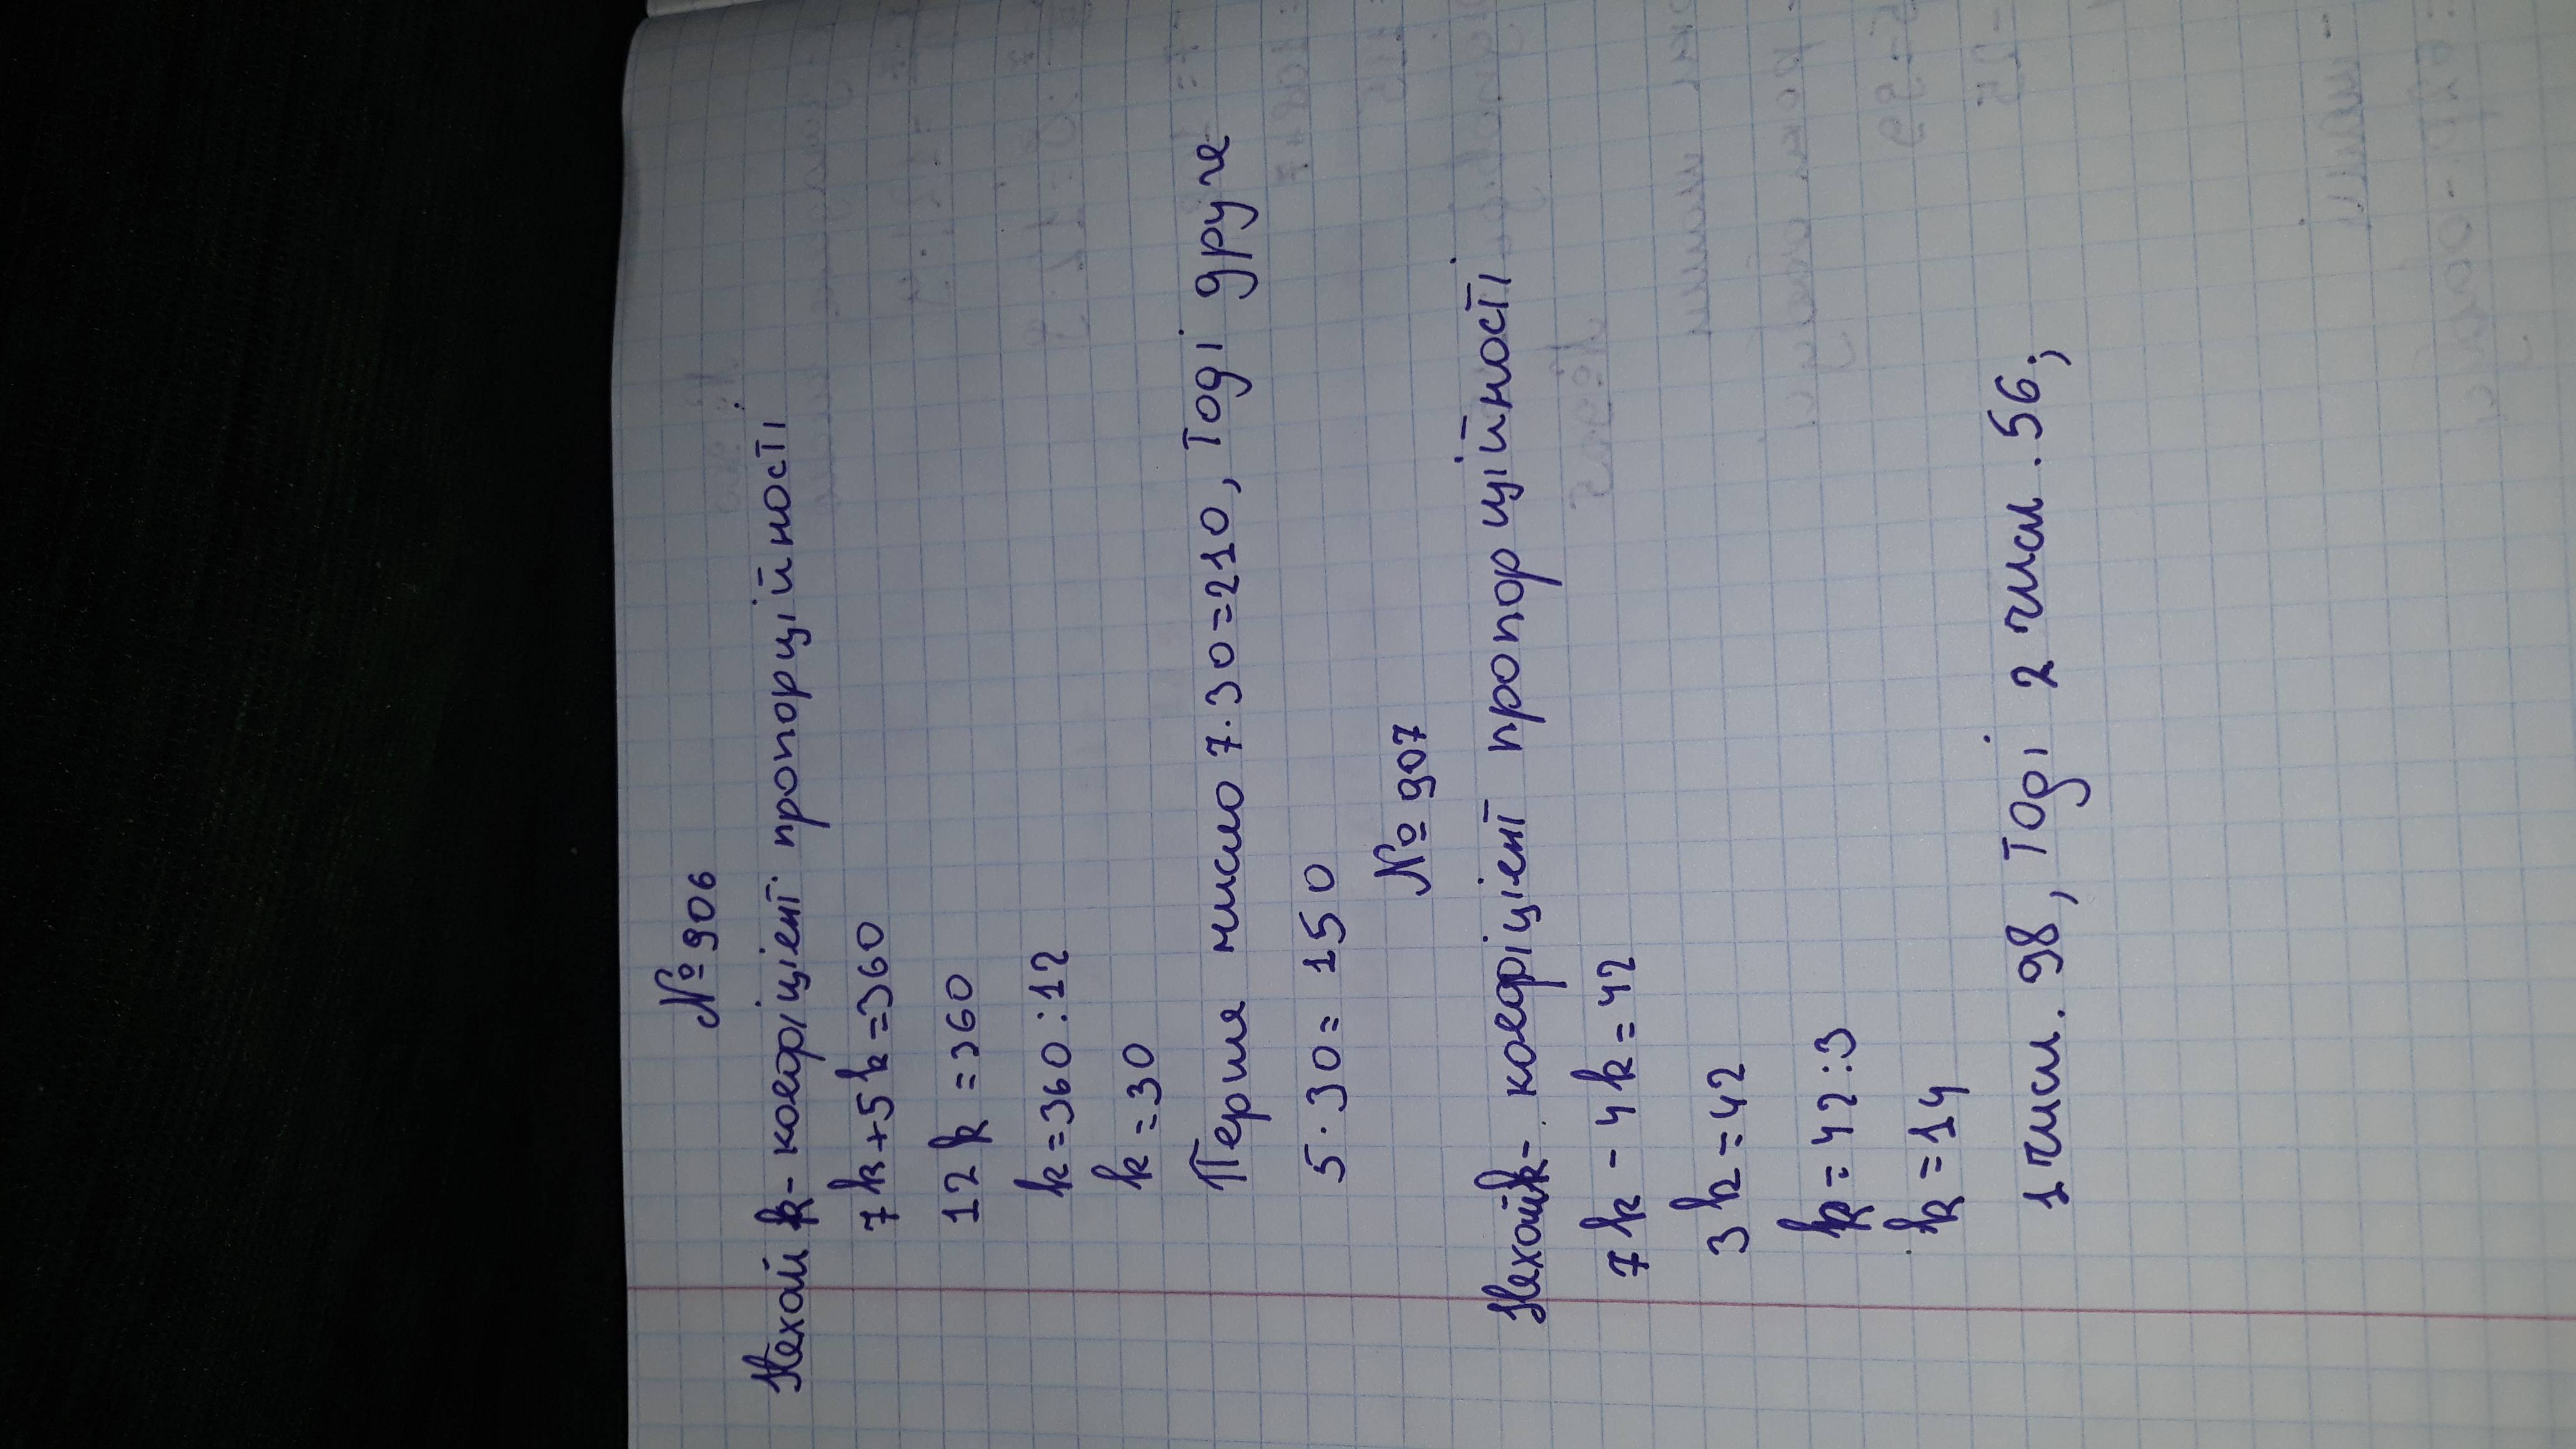 № 906
Нехай k - коефіцієнт пропорційності
7k+5k=360
12k=360
k=360:12
k=30
Перше число 7·30=210, Тоді друге
5·30=150
№ 907
Нехай k - коефіцієнт пропорційності
7k-4k=42
3k=42
k=42:3
k=14
1 числ. 98, Тоді 2 числ. 56;